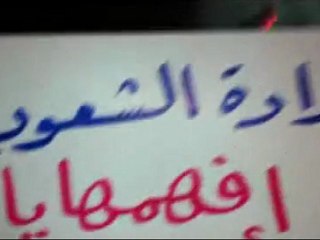 رادة الشعوب
إفهمها يا